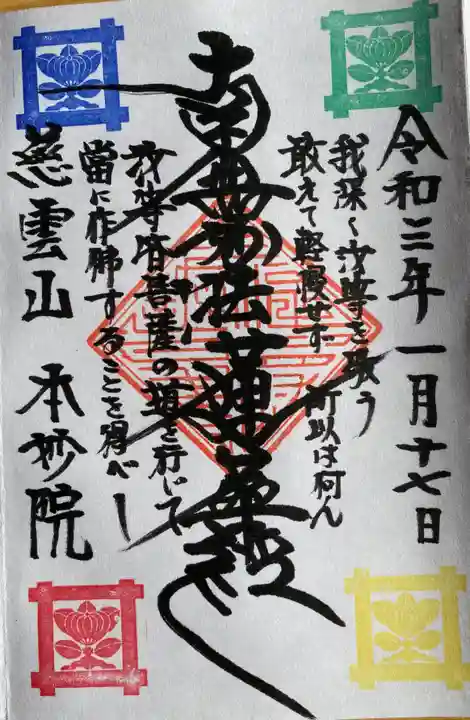 令和三年一月十七日
我深く汝等を敬う
敢えて軽慢せず 所以は何ん
南無妙法蓮華経
汝等皆菩薩の道を行じて
當に作佛することを得べし
慈雲山 本妙院